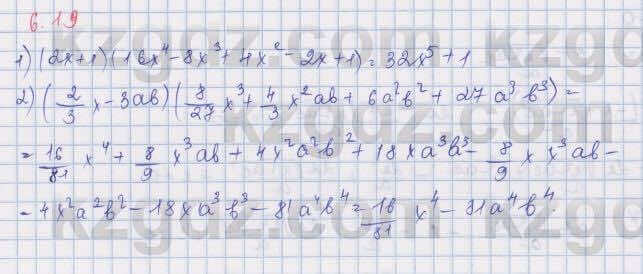 6.19
1) (2x+1)(16x⁴-8x³+4x²-2x+1)=32x⁵+1
2) (2/3 x-3ab)(8/27 x³+4/3 x²ab+6a²b²+27a³b³)=
=16/81 x⁴+8/9 x³ab+4x²a²b²+18xa³b³-8/9 x x³ab-
-4x²a²b²-18xa³b³-81a⁴b⁴=16/81 x⁴-81a⁴b⁴.
kzgdz.com